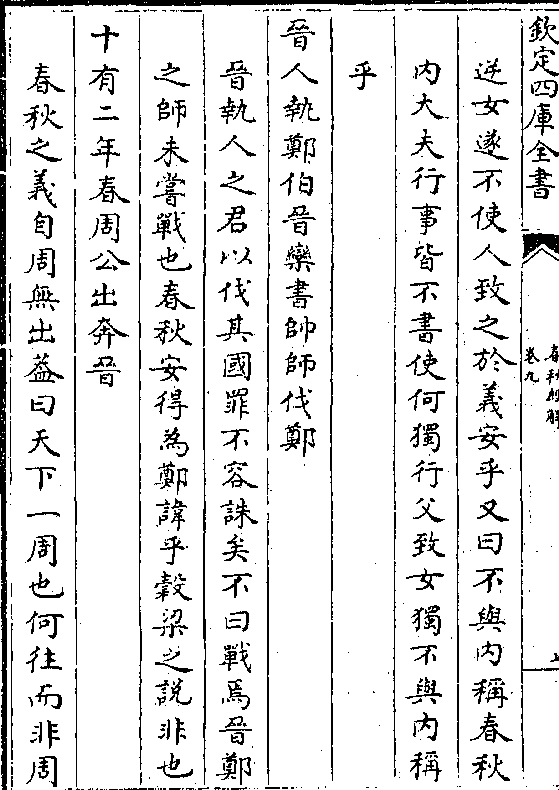 欽定四庫全書
春秋經解
卷九
逆女遂不使人致之於義安乎又曰不與内稱春秋
内大夫行事皆不書使何獨行父致女獨不與内稱
乎
晉人執鄭伯晉欒書帥師伐鄭
晉執人之君以伐其國罪不容誅矣不曰戰焉晉鄭
之師未嘗戰也春秋安得為鄭諱乎穀梁之說非也
十有二年春周公出奔晉
春秋之義自周無出葢曰天下一周也何往而非周